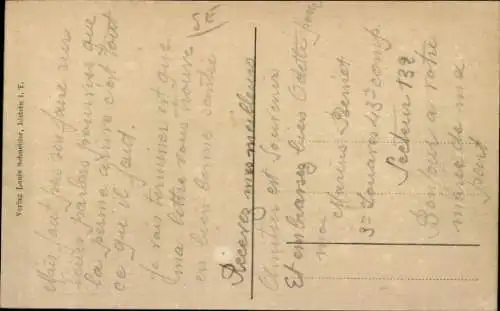 Verlag Louis Schneider, Lichtin i. T.
Mais faut pas s'en faire
leurs parlons pourvu que
la perme arrive c'est tout
ce qu'il faut.
Je vais terminer et que
ma lettre vous trouve
en bien bonne santé
Recevez mes meilleurs
et souvenir
Et embrassez bien Odette pour
moi
Marius Berriet
3e Zouaves 43e comp
Secteur 132
Bonjour a votre
mère de ma
part